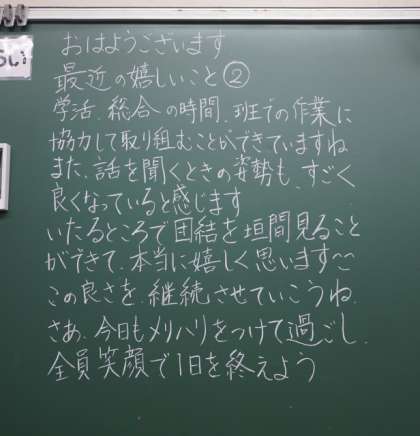 おはようございます
最近の嬉しいこと②
学活、総合の時間、班での作業に
協力して取り組むことができていますね
また、話を聞くときの姿勢も、すごく
良くなっていると感じます
いたるところで団結を垣間見ること
ができて、本当に嬉しく思います〜〜
この良さを、継続させていこうね、
さあ、今日もメリハリをつけて過ごし、
全員笑顔で1日を終えよう